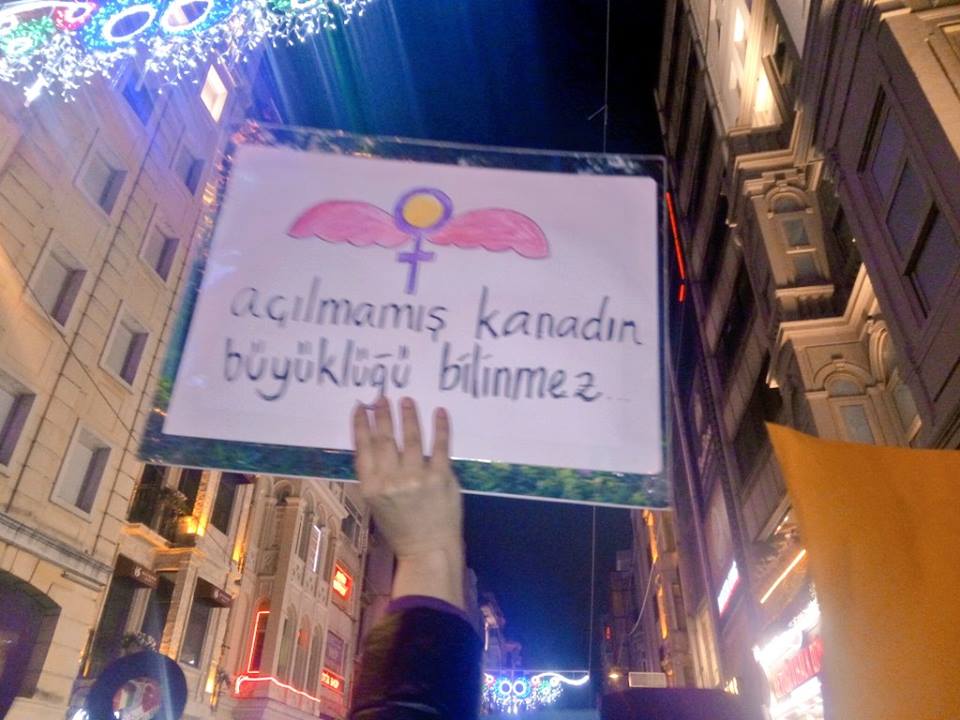 açılmamış kanadın
büyüklüğü bilinmez...